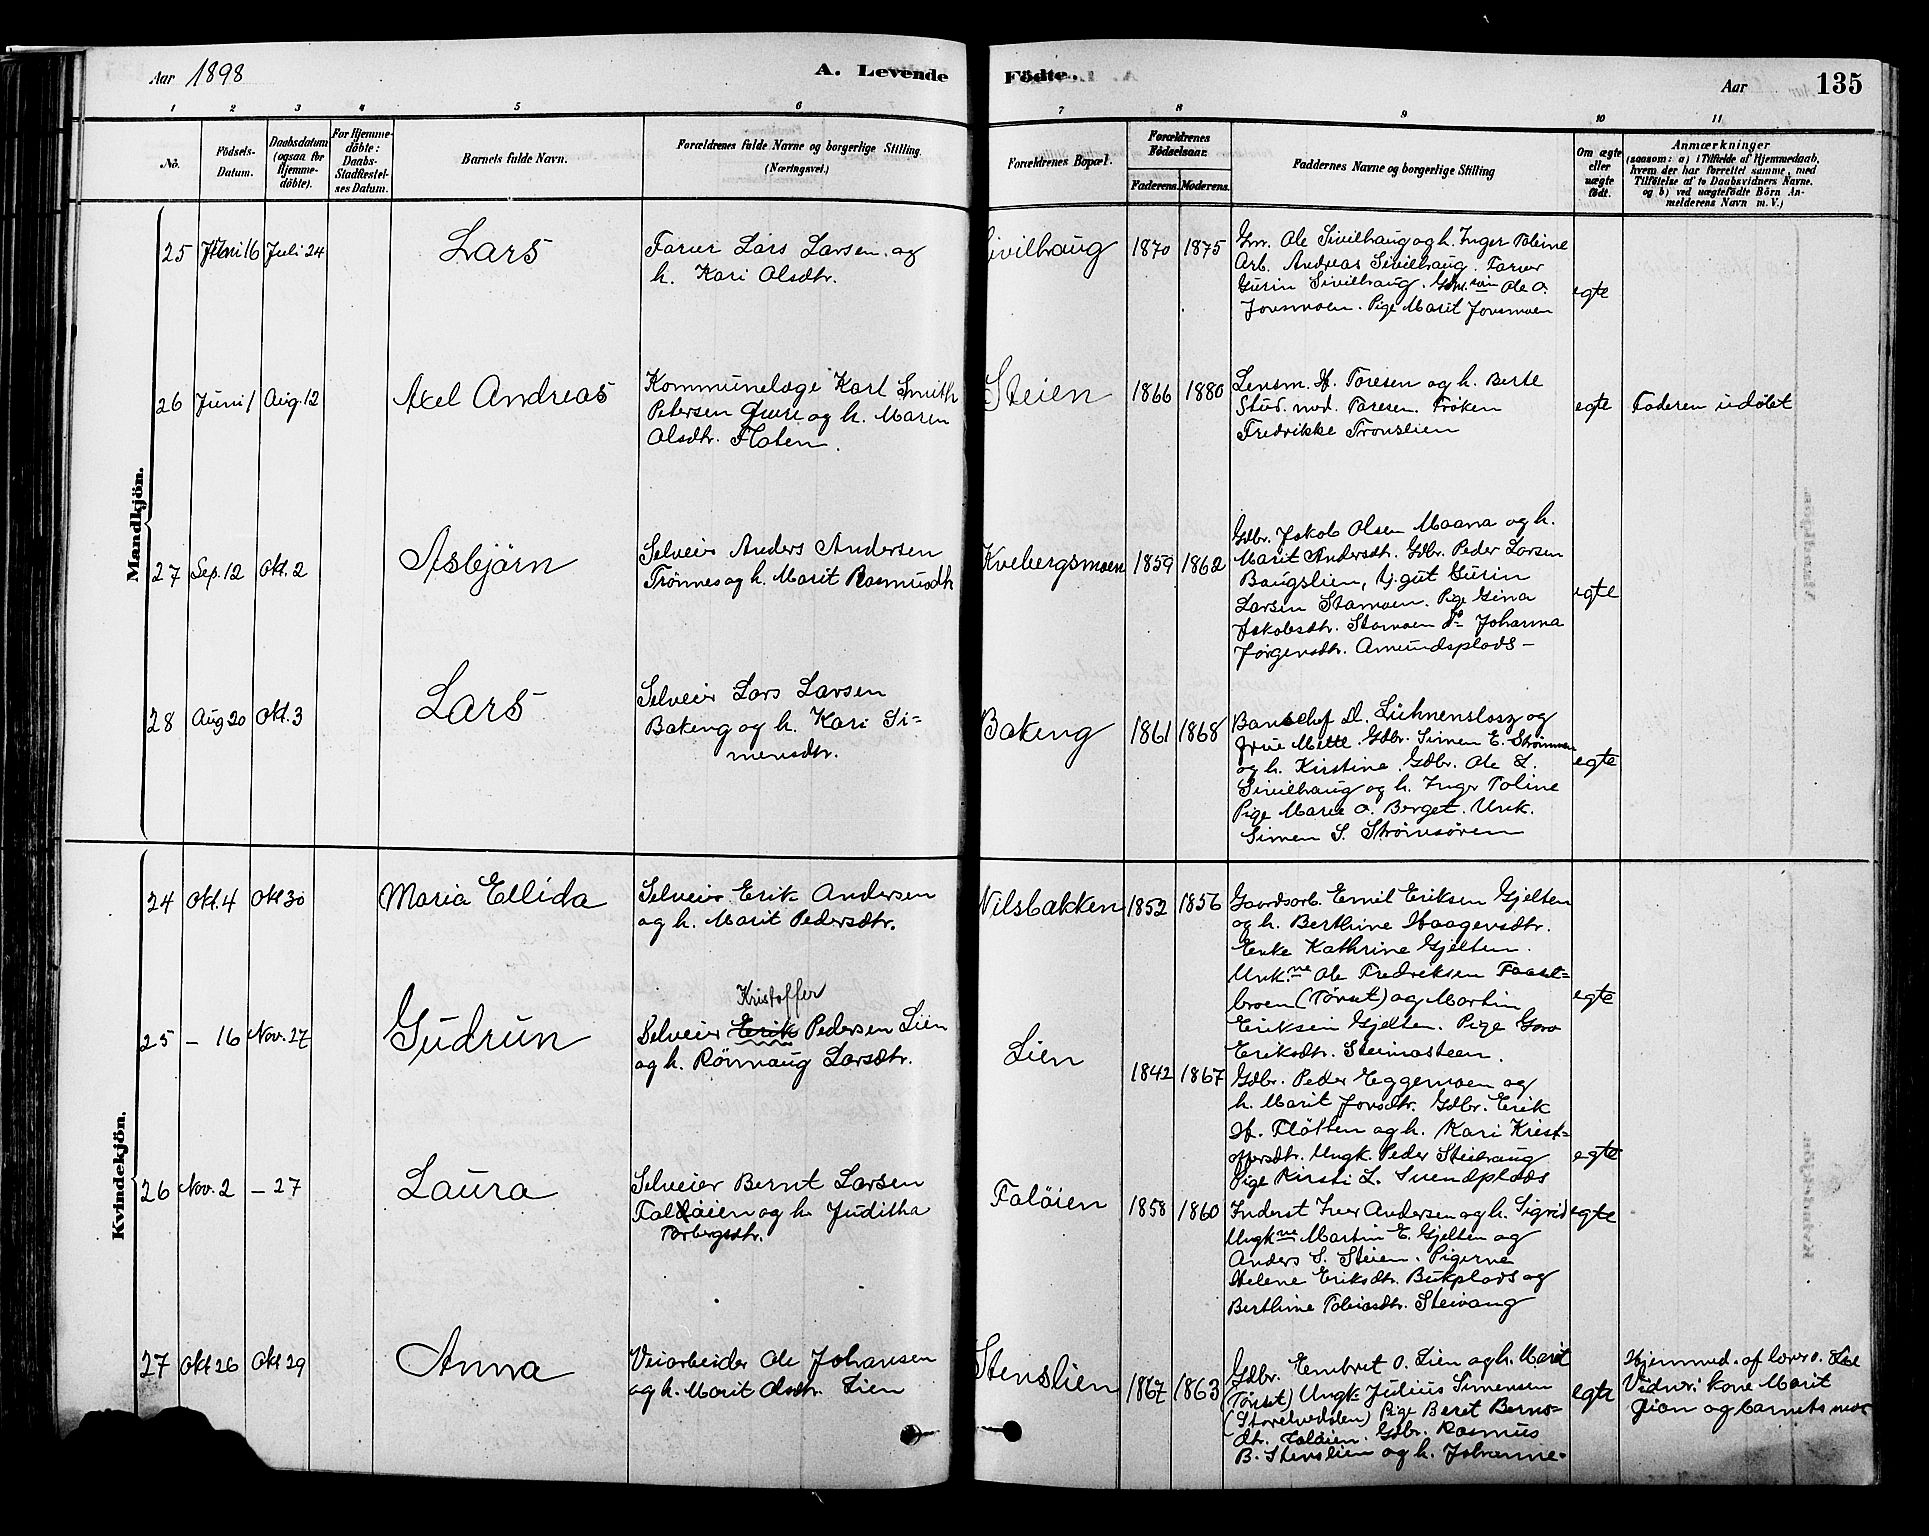 Aar 1898
A. Levende
Födte.
Aar
135
1 2 3 4 5 6 7 8 9 10 11
No.
Födsels-
Datum.
Daabsdatum
(ogsaa for
Hjemme-
döbte).
For Hjemme-
döbte:
Daabs-
Stadfæstel-
ses Datum.
Barnets fulde Navn.
Forældrenes fulde Navne og borgerlige Stilling
(Næringsvei.)
Forældrenes Bopæl.
Forældrenes
Födselsaar.
Faderens. Moderens.
Faddernes Navne og borgerlige Stilling
Om ægte
eller
uægte
födt.
Anmærkninger
(saasom: a) i Tilfælde af Hjemmedaab,
hvem der har forrettet samme, med
Tilföielse af to Daabsvidners Navne.
og b) ved uægtefödte Börn An-
melderens Navn m. V.)
Mandkjön.
25 Juni 16 Juli 24
Lars
Farver Lars Larsen og
h. Kari Olsdtr.
Sivilhaug
1870 1875
Gm. Ole Sivilhaug og h. Inger Poline
Arb. Andreas Sivilhaug. Farver
Gurin Sivilhaug. Gdm. Ole O.
Jonsmoen. Pige Marit Jonsmoen
egte
26 Juni 1 Aug. 12
Axel Andreas
Kommunelæge Karl Smith
Petersen og h. Maren
Olsdtr. Floten.
Steien
1866 1880
Lensm. H. Foresen og h. Berte
Stud. med. Foresen. Frøken
Fredrikke Tronslien
egte
Faderen udöbt
27 Sep. 12 Okt. 2
Asbjörn
Selveier Anders Andersen
Trønnes og h. Marit Rasmusdtr
Kvebergsmoen
1859 1862
Gdbr. Jakob Olsen Moana og h.
Marit Andersdtr. Gdbr. Peder Larsen
Baugslien, gut Gurin
Larsen Stamoen. Pige Gina
Jakobsdtr. Stomoen do Johanna
Jørgensdtr. Amundsplads
egte
28 Aug 20 Okt. 3
Lars
Selveier Lars Larsen
Bakeng og h. Kari Si=
mensdtr.
Bakeng
1861 1868
og
frue Mette. Gdbr. Simen E. Strømmen
og h. Kirstine. Gdbr. Ole L.
Sivilhaug og h. Inger Poline
Pige Marie O. Berget. Unk.
Simen S. Strømsøren
egte
Kvindekjön.
24 Okt. 4 Okt 30
Maria Ellida
Selveier Erik Andersen
og h. Marit Pedersdtr.
Nilsbakken
1852 1856
Gaardsarb. Emil Eriksen Gjelten
og h. Berthine Haagensdtr.
Enke Kathrine Gjelten.
Unk.ne Ole Fredriksen Faast-
broen (Tönset) og Martin
Eriksen Gjelten. Pige Goro
Eriksdtr. Steimosteen.
egte
25 – 16 Nov. 27
Gudrun
Kristoffer
Selveier Erik Pedersen Lien
og h. Rönnaug Larsdtr.
Lien
1842 1867
Gdbr. Peder Eggemoen og
h. Marit Jonsdtr. Gdbr. Erik
H. Fløtten og h. Kari Krist=
offersdtr. Ungk. Peder Steihaug
Pige Kirsti L. Svendplads
egte
26 Nov. 2 – 27
Laura
Selveier Bernt Larsen
Faløien og h. Juditha
Torbergsdtr.
Faløien
1858 1860
Inderst Iver Andersen og h. Sigrid
Ungkne Martin E. Gjelten og
Anders S. Steien. Pigerne
Helene Eriksdtr. Bukplads og
Berthine Tobiasdtr. Steivang
egte
27 Okt 26 Okt 29
Anna
Veiarbeider Ole Johansen
og h. Marit Olsdtr. Lien
Stenslien
1867 1863
Gdbr. Embret O. Lien og h. Marit
(Tönset) Ungk. Julius Simensen
(Storelvedalen) Pige Beret Bernts-
dtr. Faløien. Gdbr. Rasmus
B. Stenslien og h. Johanne.
egte
Hjemmed. af lærer O. Lie
Vidner: kone Marit
og barnets mor